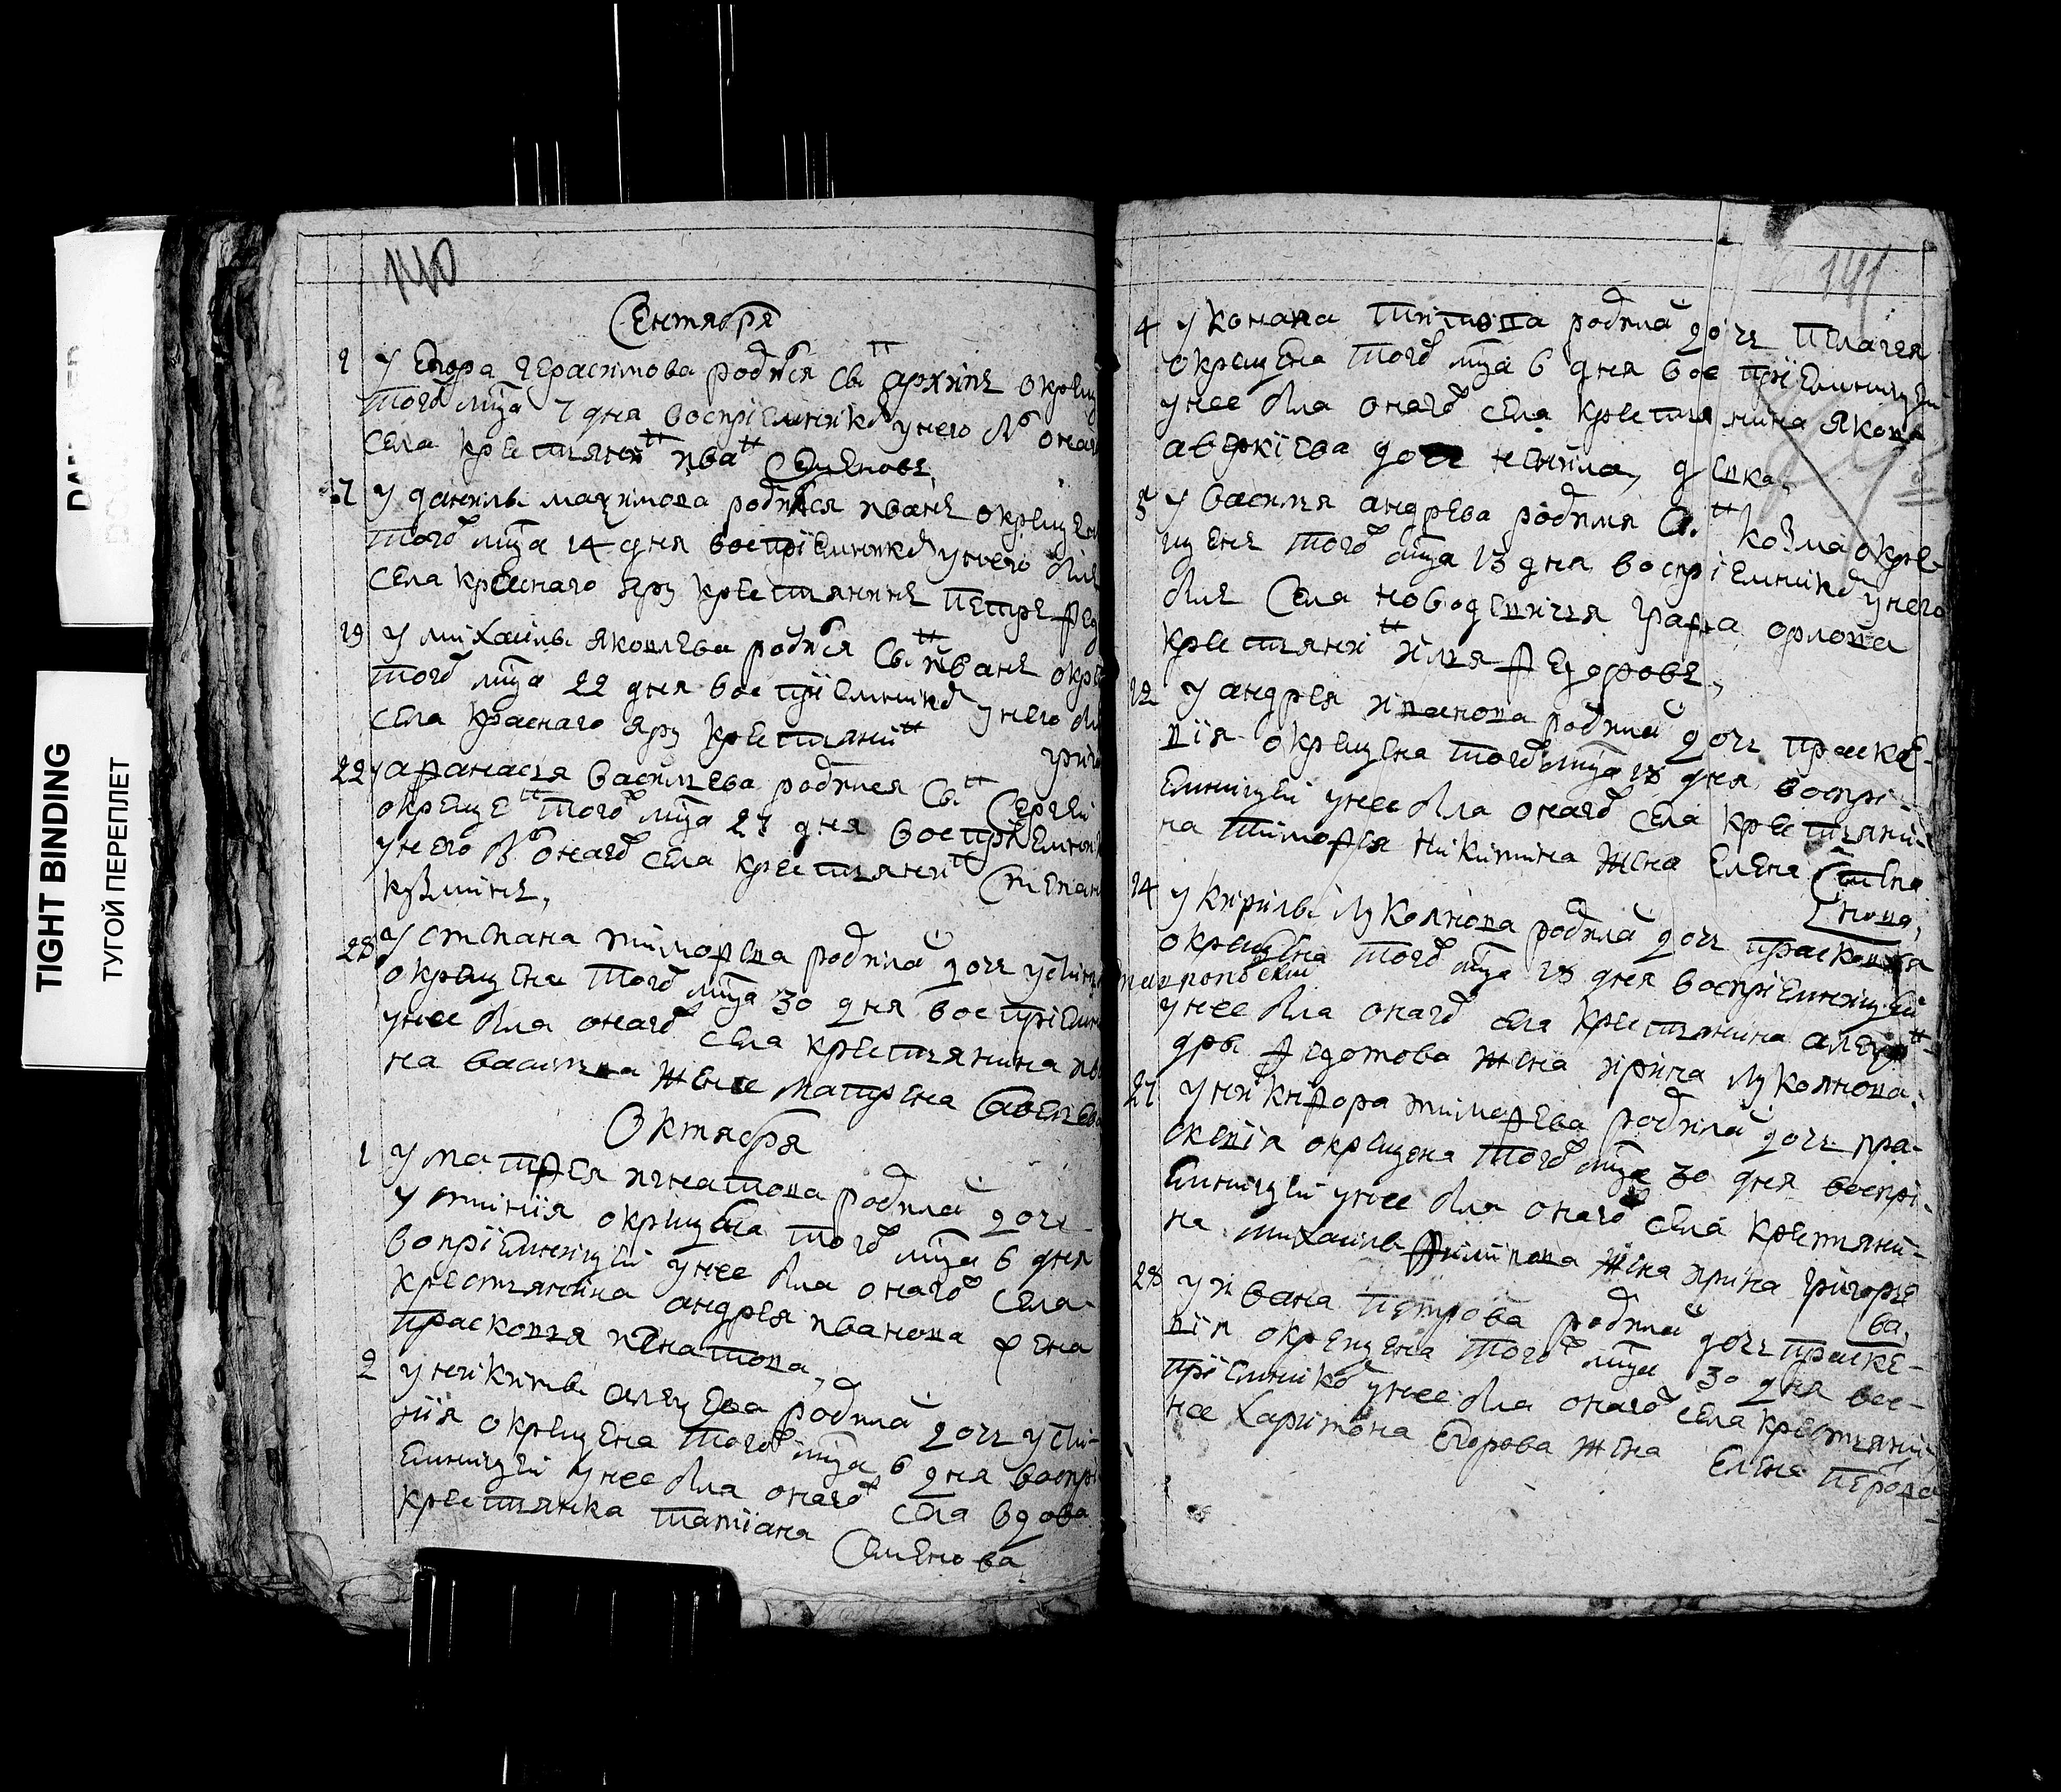 TIGHT BINDING
ТУГОЙ ПЕРЕПЛЕТ
140
Сентября
1 У Егора Герасимова родися сын Архипъ окрещ
того мца 7 дня воспріемникъ у него былъ онаг
села крестянин иван Семеновъ,
7 У данилы максимова родися иванъ окрещен
того мца 14 дня воспріемникъ у него былъ
села красного яру крестянинъ петръ фед
19 У михаилы яковлева родися сын иванъ окре
того мца 22 дня воспріемникъ у него бы
села красного яру крестянин григ
22 У афанасья васильева родился сын Сергей
окрещен того мца 27 дня воспріемник
у него был онаго села крестянин Степан
кузминъ,
28 У степана тимофева родила дочь устин
окрещена того мца 30 дня воспріемн
у нее была онаго села крестянина ив
на васильева жена матрена Савельева
Октября
1 У матфея игнатова родила дочь
устинія окрещена того мца 6 дня
вопріемницей у нее была онаго села
крестянина андрея иванова жена
прасковья игнатова,
2 У никиты алексева родила дочь усти-
нія окрещена того мца 6 дня воспрі
емницей у нее была онаго села вдова
крестянка татіана
Семенова
141
4 У конана титова родила дочь пелагея
окрещена того мца 6 дня воспріемницей
у нее была онаго села крестянина якова
аверкіева дочь неонила, девка,
5 У василя андрева родился сын козма окре
щенъ того мца 13 дня воспріемникъ у него
былъ Села новодевичья графа орлова
крестянин илья федоровъ,
12 У андрея иванова родила дочь праске-
вія окрещена того мца 18 дня воспрі-
емницей у нее была онаго села крестяни-
на тимофея никитина жена елена Степа
нова,
14 У кирилы лукоянова родила дочь прасковья
окрещена того мца 18 дня воспріемницей
у нее была онаго села крестянина алексан
дры федотова жена ирина лукоянова.
27 У никифора тимофева родила дочь пра-
скевія окрещена того мца 30 дня воспрі-
емницей у нее была онаго села крестяни-
на михаилы филипова жена ирина григорье
ва,
28 У ивана петрова родила дочь праске-
вія окрещена того мца 30 дня вос-
пріемникъ у нее была онаго села крестяни-
не харитона Егорова жена елена петрова